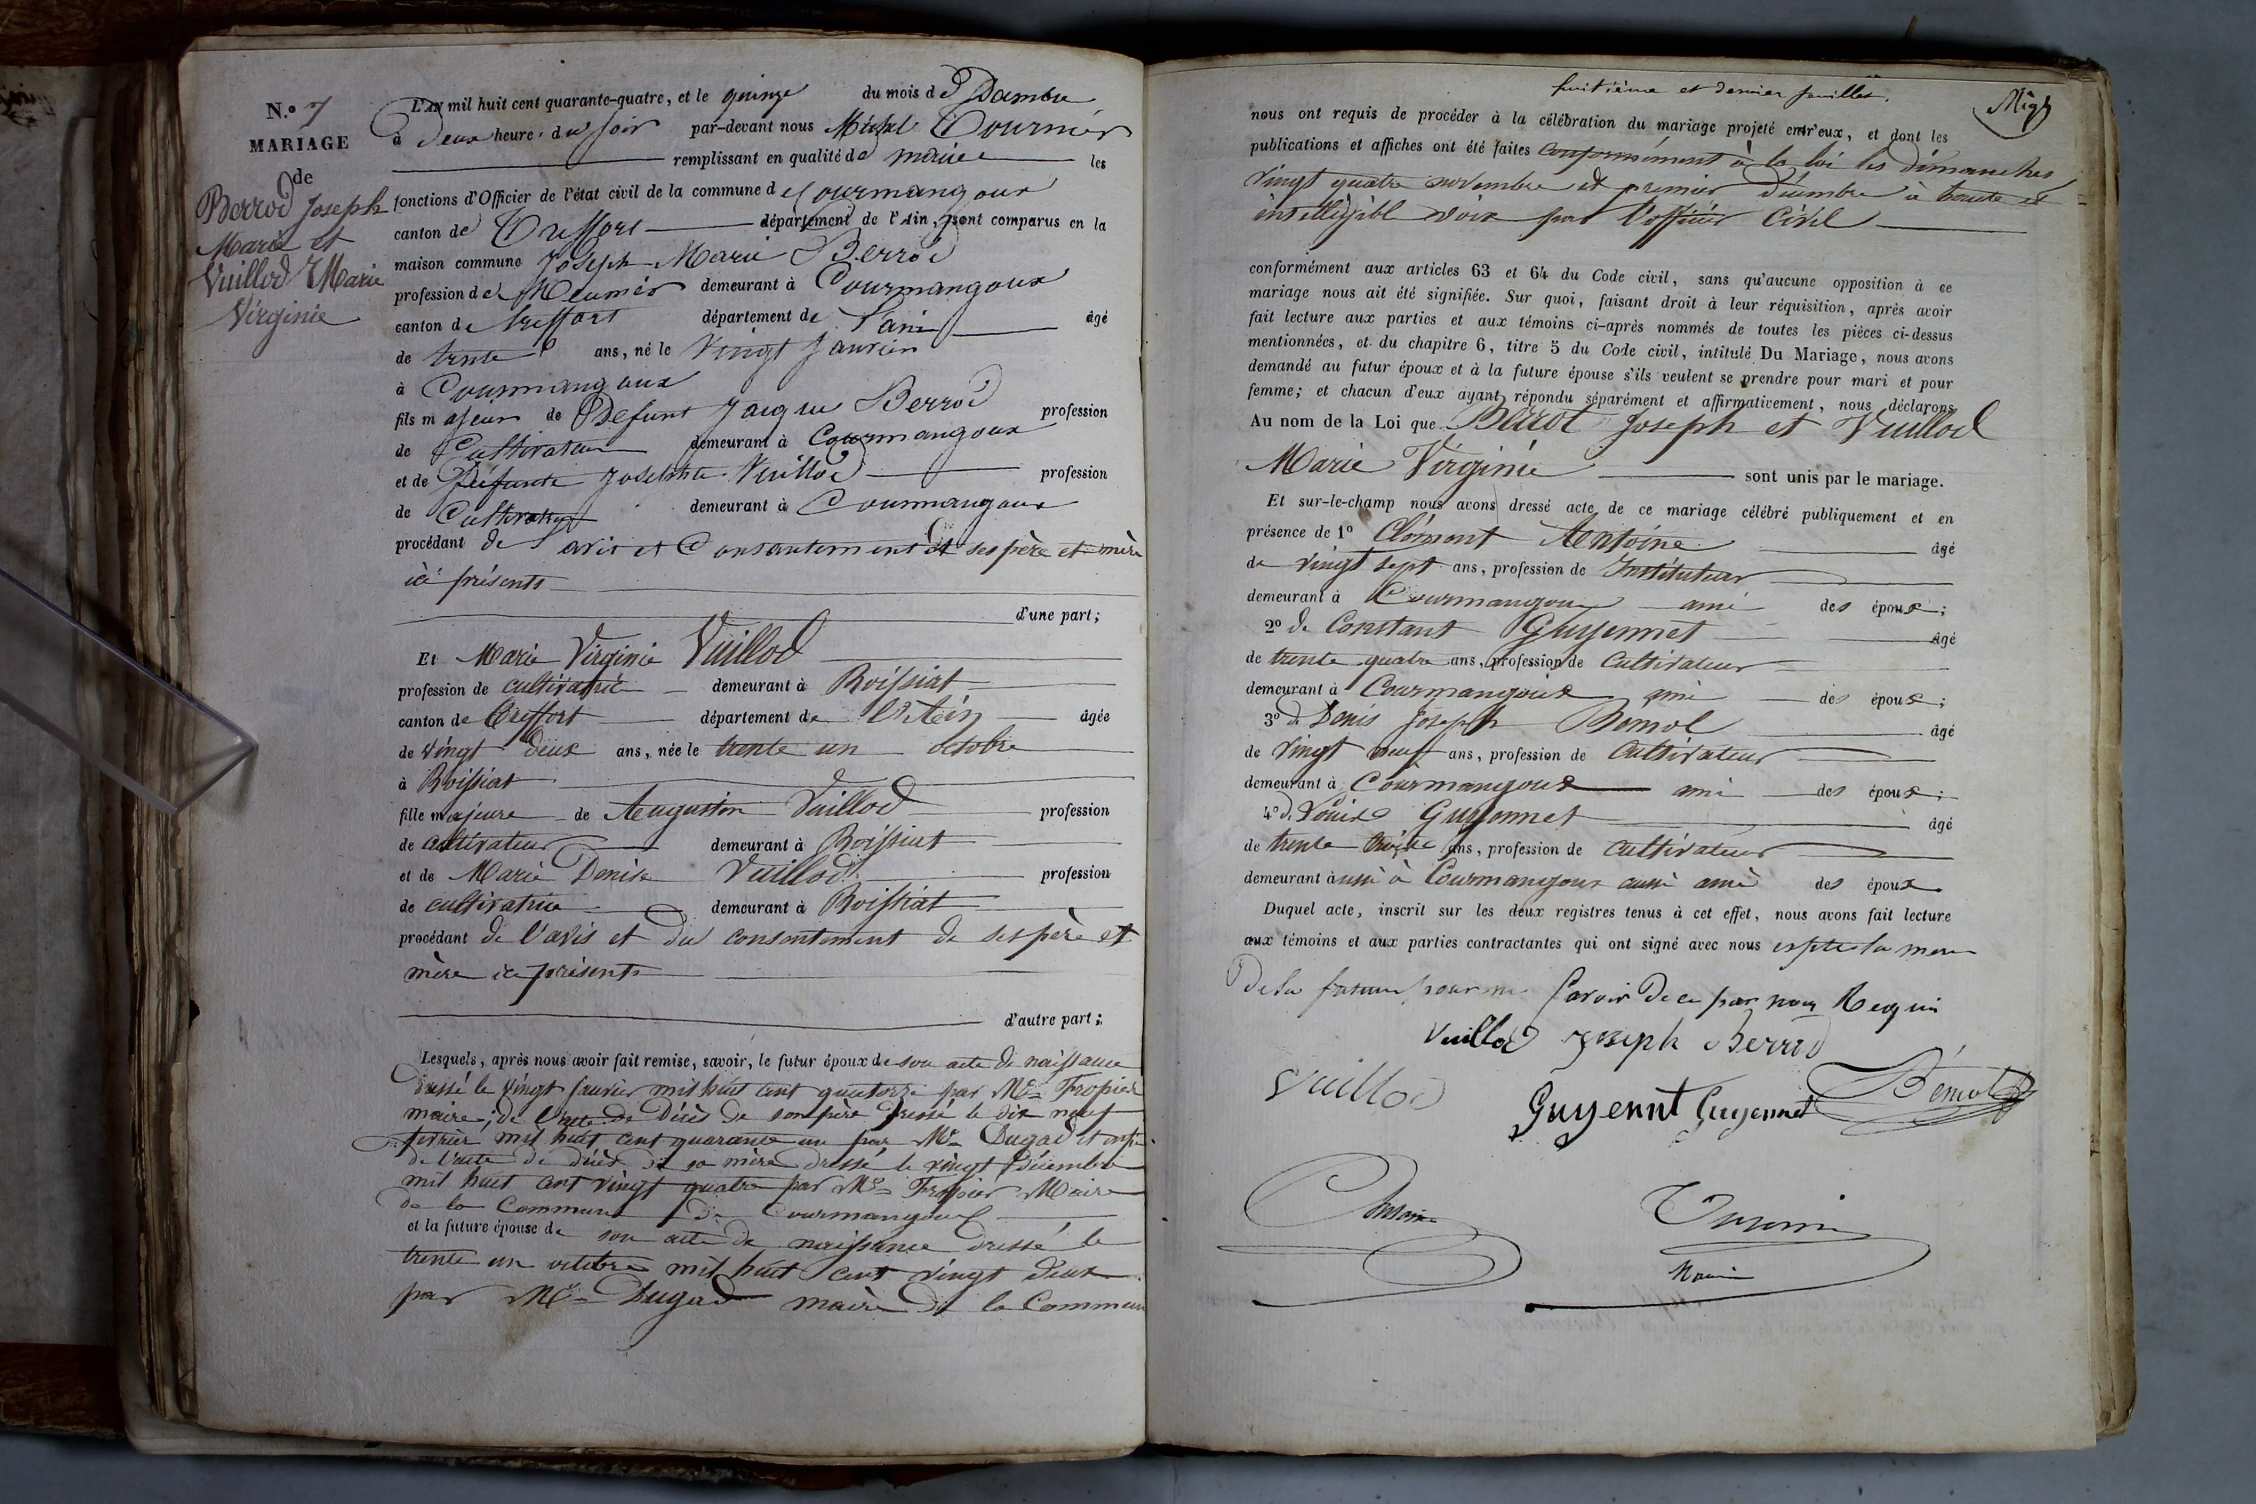 N.º 7
MARIAGE
de
Berrod Joseph
Marie et
Vuillod Marie
Virginie
L'AN mil huit cent quarante-quatre, et le quinze du mois de
à deux heures du soir par-devant nous Michel Tournier
remplissant en qualité de maire les
fonctions d'Officier de l'état civil de la commune de Courmangoux
canton de Treffort département de l'Ain, sont comparus en la
maison commune Joseph Marie Berrod
profession de Meunier demeurant à Courmangoux
canton de treffort département de l'ain âgé
de trente ans, né le vingt Janvier
à Courmangoux
fils majeur de Defunt Jacques Berrod profession
de Cultivateur demeurant à Courmangoux
et de Défunte Josephte Vuillod profession
de demeurant à Courmangoux
procédant de l'avis et Consentement de ses père et mère
ici présents
d'une part;
Et Marie Virginie Vuillod
profession de cultivatrice demeurant à Roissiat
canton de Treffort département de l'Ain âgée
de vingt deux ans, née le trente un octobre
à Roissiat
fille majeure de Augustin Vuillod profession
de cultivateur demeurant à Roissiat
et de Marie Denise Vuillod profession
de cultivatrice demeurant à Roissiat
procédant de l'avis et du consentement de ses père et
mère ici présents
d'autre part;
Lesquels, après nous avoir fait remise, savoir, le futur époux de son acte de naissance
dressé le vingt Janvier mil huit cent quatorze par Mr Tropier
maire; de l'acte de décès de son père dressé le dix neuf
février mil huit cent quarante un par Mr Dugad et
de l'acte de décès de sa mère dressé le vingt décembre
mil huit cent vingt quatre par Mr Tropier Maire
de la Commune de Courmangoux
et la future épouse de son acte de naissance dressé le
trente un octobre mil huit cent vingt deux
par Mr Dugad maire de la Commune
huitième et dernier feuillet.
nous ont requis de procéder à la célébration du mariage projeté entr'eux, et dont les
publications et affiches ont été faites conformément à la loi les dimanches
vingt quatre novembre et premier décembre à haute et
intelligibl voix par l'officier civil
conformément aux articles 63 et 64 du Code civil, sans qu'aucune opposition à ce
mariage nous ait été signifiée. Sur quoi, faisant droit à leur réquisition, après avoir
fait lecture aux parties et aux témoins ci-après nommés de toutes les pièces ci-dessus
mentionnées, et du chapitre 6, titre 5 du Code civil, intitulé Du Mariage, nous avons
demandé au futur époux et à la future épouse s'ils veulent se prendre pour mari et pour
femme; et chacun d'eux ayant répondu séparément et affirmativement, nous déclarons
Au nom de la Loi que Berrot Joseph et Vuillod
Marie Virginie sont unis par le mariage.
Et sur-le-champ nous avons dressé acte de ce mariage célébré publiquement et en
présence de 1º Clémont Antoine âgé
de vingt sept ans, profession de Instituteur
demeurant à Courmangoux ami des époux;
2º de Constant Guyennet âgé
de trente quatre ans, profession de cultivateur
demeurant à Courmangoux ami des époux;
3º de Denis Joseph Bémol âgé
de vingt neuf ans, profession de cultivateur
demeurant à Courmangoux ami des époux;
4º de Louis Guyennet âgé
de trente ans, profession de cultivateur
demeurant aussi à Courmangoux aussi ami des époux.
Duquel acte, inscrit sur les deux registres tenus à cet effet, nous avons fait lecture
aux témoins et aux parties contractantes qui ont signé avec nous la mere
De la future pour ne savoir de ce par nous Requis
Vuillod Joseph Berrod
Vuillod
Guyennt Guyennet Bémol
Maire